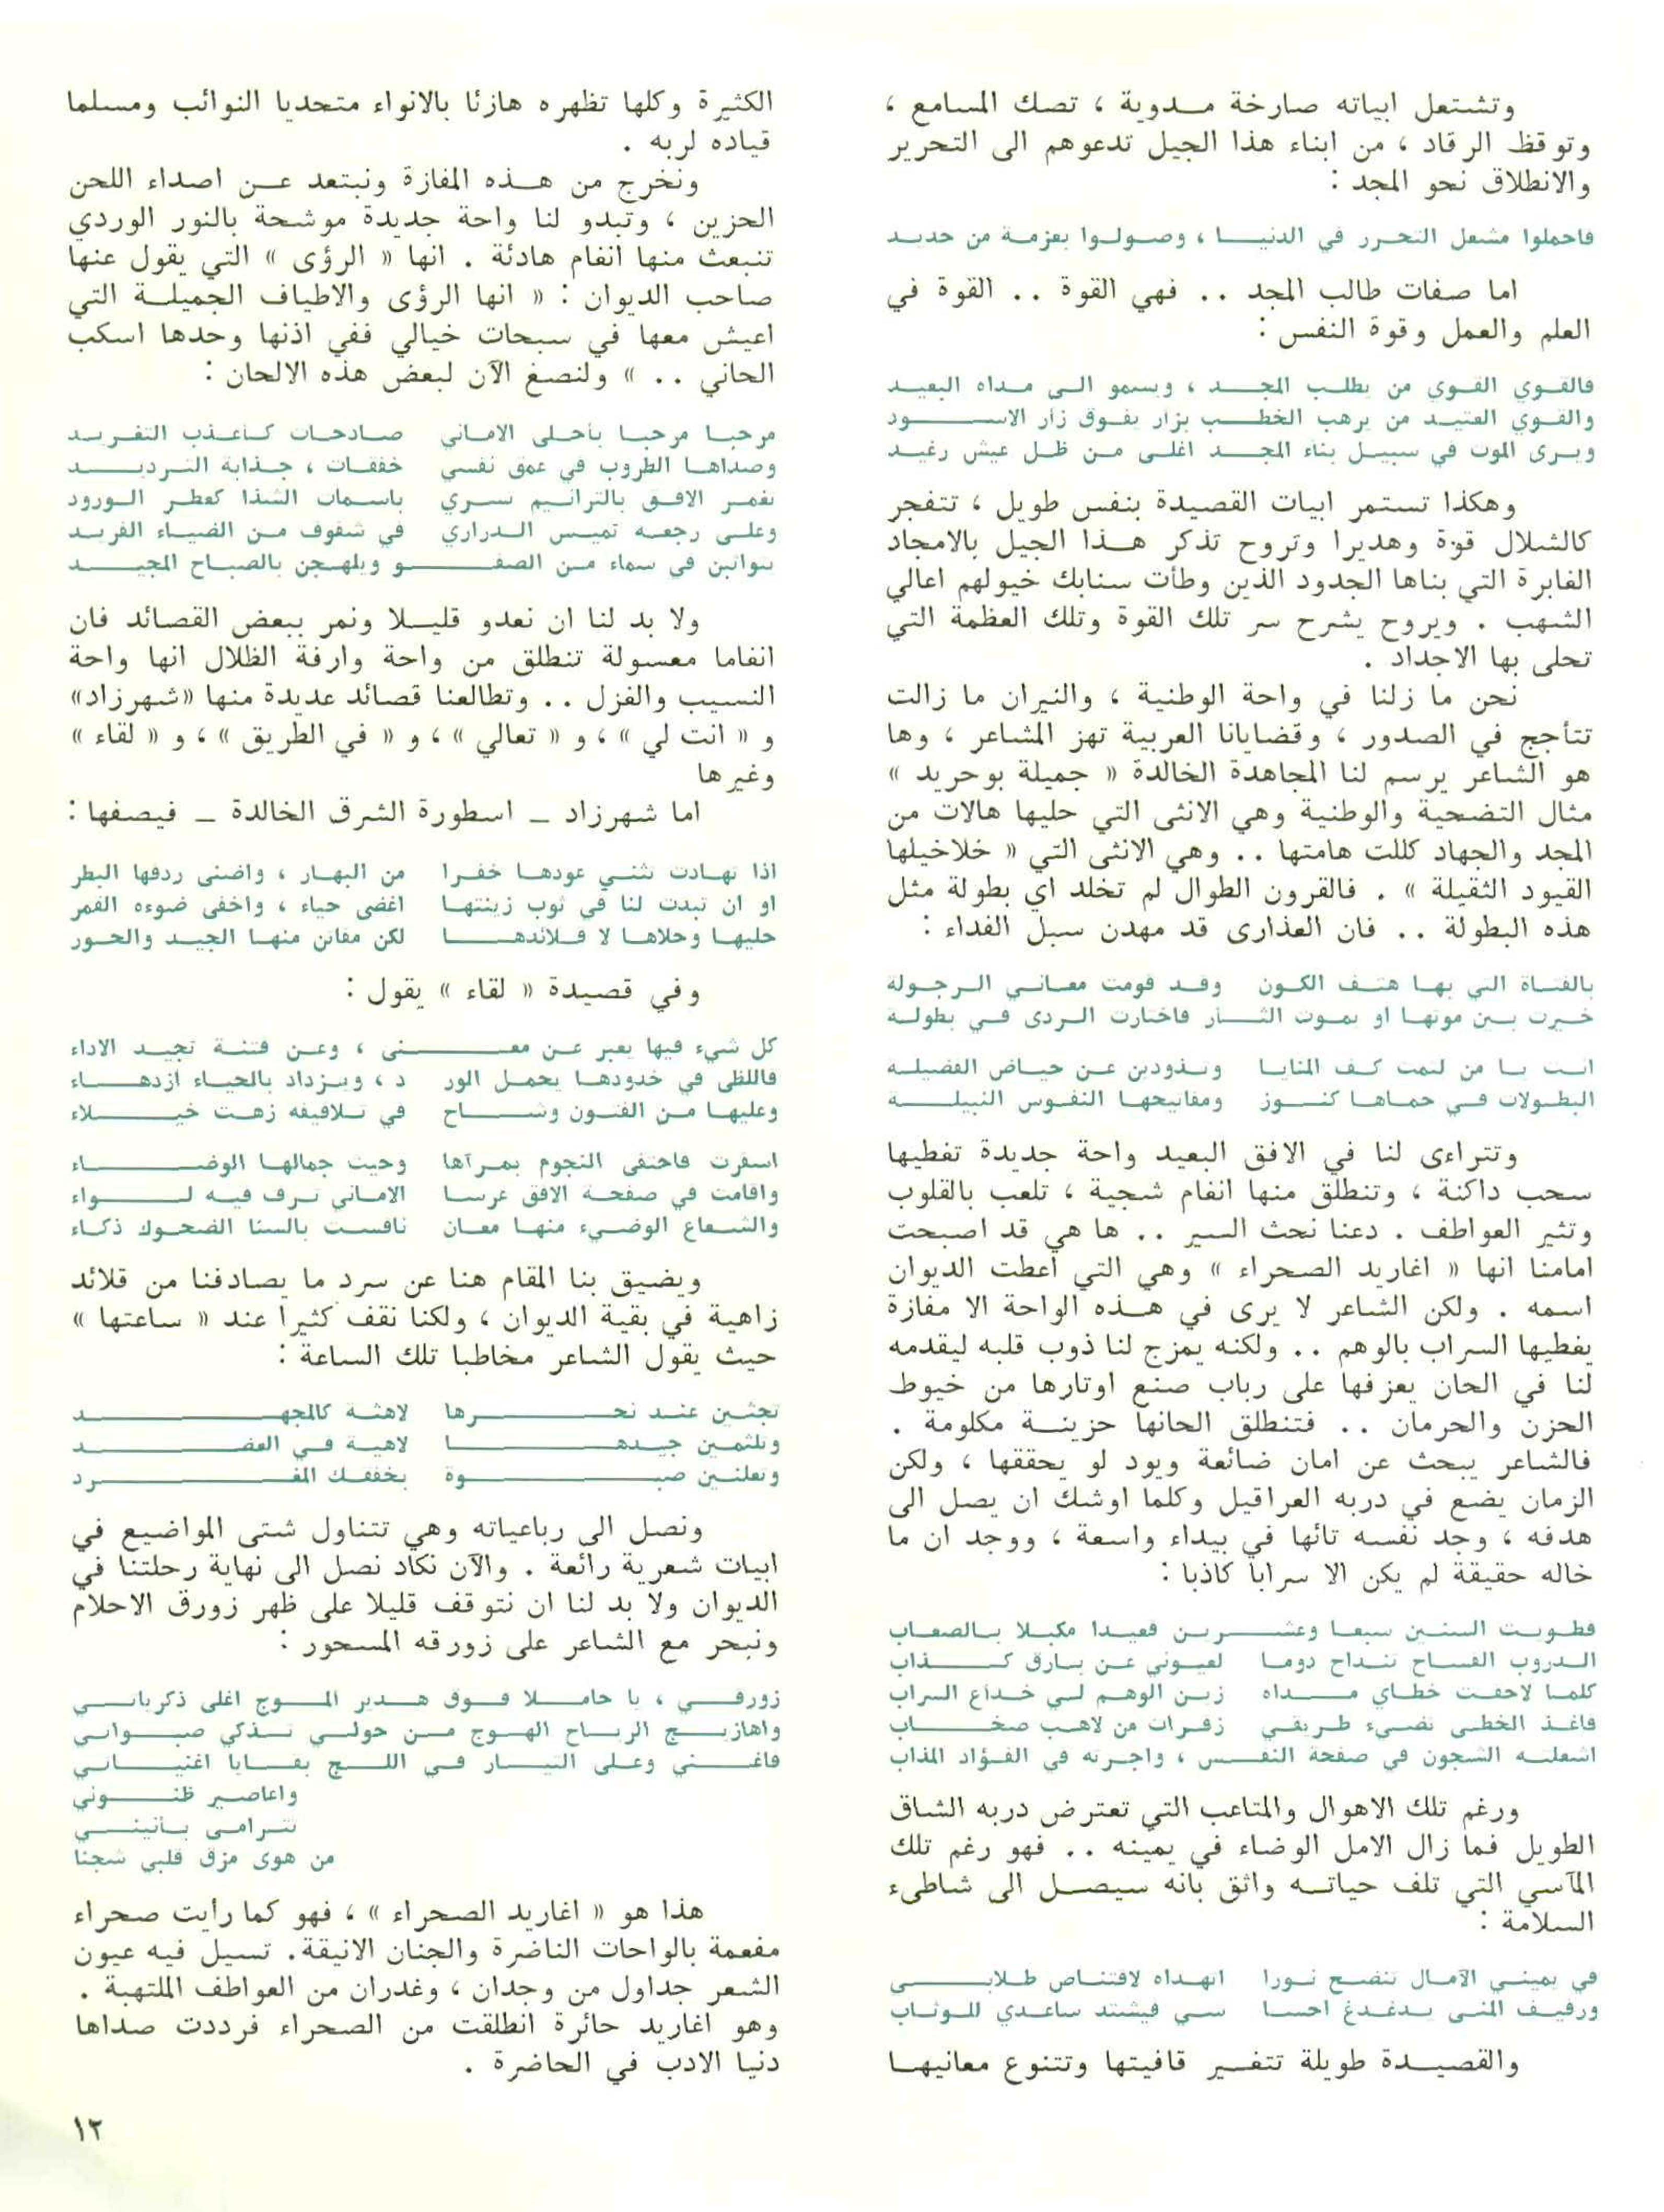 وتشتعل ابياته صارخة مدوية ، تصك المسامع ،
وتوقظ الرقاد ، من ابناء هذا الجيل تدعوهم الى التحرير
والانطلاق نحو المجد :
فاحملوا مشعل التحرر في الدنيا ، وصولوا بعزمة من حديد
اما صفات طالب المجد .. فهي القوة .. القوة في
العلم والعمل وقوة النفس :
فالقوي القوي من يطلب المجد ، ويسمو الى مداه البعيد
والقوي العتيد من يرهب الخطب بزار يفوق زأر الاسود
ويرى الموت في سبيل بناء المجد اغلى من ظل عيش رغيد
وهكذا تستمر ابيات القصيدة بنفس طويل ، تتفجر
كالشلال قوة وهديرا وتروح تذكر هذا الجيل بالامجاد
الغابرة التي بناها الجدود الذين وطأت سنابك خيولهم اعالي
الشهب . ويروح يشرح سر تلك القوة وتلك العظمة التي
تحلى بها الاجداد .
نحن ما زلنا في واحة الوطنية ، والنيران ما زالت
تتأجج في الصدور ، وقضايانا العربية تهز المشاعر ، وها
هو الشاعر يرسم لنا المجاهدة الخالدة « جميلة بوحريد »
مثال التضحية والوطنية وهي الانثى التي حليها هالات من
المجد والجهاد كللت هامتها .. وهي الانثى التي « خلاخيلها
القيود الثقيلة » . فالقرون الطوال لم تخلد اي بطولة مثل
هذه البطولة .. فان العذارى قد مهدن سبل الفداء :
بالفتاة التي بها هتف الكون وقد قومت معاني الرجولة
خيرت بين موتها او يموت الثار فاختارت الردى في بطولة
انت يا من لثمت كف المنايا وتذودين عن حياض الفضيلة
البطولات في حماها كنوز ومفاتيحها النفوس النبيلة
وتتراءى لنا في الافق البعيد واحة جديدة تغطيها
سحب داكنة ، وتنطلق منها انغام شجية ، تلعب بالقلوب
وتثير العواطف . دعنا نحث السير .. ها هي قد اصبحت
امامنا انها « اغاريد الصحراء » وهي التي اعطت الديوان
اسمه . ولكن الشاعر لا يرى في هذه الواحة الا مفازة
يغطيها السراب بالوهم .. ولكنه يمزج لنا ذوب قلبه ليقدمه
لنا في الحان يعزفها على رباب صنع اوتارها من خيوط
الحزن والحرمان .. فتنطلق الحانها حزينة مكلومة .
فالشاعر يبحث عن امان ضائعة ويود لو يحققها ، ولكن
الزمان يضع في دربه العراقيل وكلما اوشك ان يصل الى
هدفه ، وجد نفسه تائها في بيداء واسعة ، ووجد ان ما
خاله حقيقة لم يكن الا سرابا كاذبا :
فطويت السنين سبعا وعشرين قعيدا مكبلا بالصعاب
الدروب الفساح تنداح دوما لعيوني عن بارق كذاب
كلما لاحقت خطاي مداه زين الوهم لي خداع السراب
فاغذ الخطى تضيء طريقي زفرات من لاهب صخاب
اشعلته الشجون في صفحة النفس ، واجرته في الفؤاد المذاب
ورغم تلك الاهوال والمتاعب التي تعترض دربه الشاق
الطويل فما زال الامل الوضاء في يمينه .. فهو رغم تلك
المآسي التي تلف حياته واثق بانه سيصل الى شاطىء
السلامة :
في يميني الآمال تنضح نورا اتهداه لاقتناص طلابي
ورفيف المنى يدغدغ احسا سي فيشتد ساعدي للوثاب
والقصيدة طويلة تتغير قافيتها وتتنوع معانيها
الكثيرة وكلها تظهره هازئا بالانواء متحديا النوائب ومسلما
قياده لربه .
ونخرج من هذه المفازة ونبتعد عن اصداء اللحن
الحزين ، وتبدو لنا واحة جديدة موشحة بالنور الوردي
تنبعث منها انغام هادئة . انها « الرؤى » التي يقول عنها
صاحب الديوان : « انها الرؤى والاطياف الجميلة التي
اعيش معها في سبحات خيالي ففي اذنها وحدها اسكب
الحاني .. » ولنصغ الآن لبعض هذه الالحان :
مرحبا مرحبا بأحلى الاماني صادحات كأعذب التغريد
وصداها الطروب في عمق نفسي خفقات ، جذابة الترديد
يغمر الافق بالترانيم سري باسمات الشذا كعطر الورود
وعلى رجعه تميس الدراري في شفوف من الضياء الفريد
يتواثبن في سماء من الصفو ويلهجن بالصباح المجيد
ولا بد لنا ان نعدو قليلا ونمر ببعض القصائد فان
انغاما معسولة تنطلق من واحة وارفة الظلال انها واحة
النسيب والغزل .. وتطالعنا قصائد عديدة منها «شهرزاد»
و « انت لي » ، و « تعالي » ، و « في الطريق » ، و « لقاء »
وغيرها
اما شهرزاد – اسطورة الشرق الخالدة – فيصفها :
اذا تهادت تثنى عودها خفرا من البهار ، واضنى ردفها البطر
او ان تبدت لنا في ثوب زينتها اغضى حياء ، واخفى ضوءه القمر
حليها وحلاها لا قلائدها لكن مفاتن منها الجيد والحور
وفي قصيدة « لقاء » يقول :
كل شيء فيها يعبر عن معنى ، وعن فتنة تجيد الاداء
فاللظى في خدودها يحمل الور د ، ويزداد بالحياء ازدهاء
وعليها من الفتون وشاح في تلافيفه زهت خيلاء
اسفرت فاحتفى النجوم بمرآها وحيت جمالها الوضاء
واقامت في صفحة الافق عرسا الاماني ترف فيه لواء
والشعاع الوضيء منها معان نافست بالسنا الضحوك ذكاء
ويضيق بنا المقام هنا عن سرد ما يصادفنا من قلائد
زاهية في بقية الديوان ، ولكنا نقف كثيرا عند « ساعتها »
حيث يقول الشاعر مخاطبا تلك الساعة :
تجثين عند نحرها لاهثة كالمجهد
وتلثمين جيدها لاهية في العقد
وتعلنين صبوة بخفقك المغرد
ونصل الى رباعياته وهي تتناول شتى المواضيع في
ابيات شعرية رائعة . والآن نكاد نصل الى نهاية رحلتنا في
الديوان ولا بد لنا ان نتوقف قليلا على ظهر زورق الاحلام
ونبحر مع الشاعر على زورقه المسحور :
زورقي ، يا حاملا فوق هدير الموج اغلى ذكرياتي
واهازيج الرياح الهوج من حولي تذكي صبواتي
فاغني وعلى التيار في اللج بقايا اغنياتي
واعاصير ظنوني
تترامى بأنيني
من هوى مزق قلبي شجنا
هذا هو « اغاريد الصحراء » ، فهو كما رأيت صحراء
مفعمة بالواحات الناضرة والجنان الانيقة. تسيل فيه عيون
الشعر جداول من وجدان ، وغدران من العواطف الملتهبة .
وهو اغاريد حائرة انطلقت من الصحراء فرددت صداها
دنيا الادب في الحاضرة .
١٢